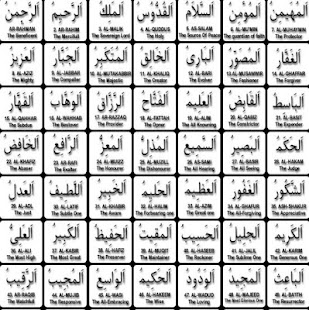 اَلرَّحْمٰنُ
AR-RAHMAN
The Beneficent
اَلرَّحِيْمُ
2. AR-RAHIM
The Merciful
اَلْمَلِكُ
3. AL-MALIK
The Sovereign Lord
اَلْقُدُّوْسُ
4. AL-QUDDUS
The Holy
اَلسَّلَامُ
5. AS-SALAM
The Source Of Peace
اَلْمُؤْمِنُ
6. AL-MU'MIN
The guardian of faith
اَلْمُهَيْمِنُ
The Protector
اَلْعَزِيْزُ
8. AL-AZIZ
The Mighty
اَلْجَبَّارُ
9. AL-JABBAR
The Compeller
اَلْمُتَكَبِّرُ
10. AL-MUTAKABBIR
The Majestic
اَلْخَالِقُ
11. AL-KHALIQ
The Creator
اَلْبَارِئُ
12. AL-BARI
The Evolver
اَلْمُصَوِّرُ
13. AL-MUSAWWIR
The Fashioner
اَلْغَفَّارُ
14. AL-GHAFFAR
The Forgiver
اَلْقَهَّارُ
15. AL-QAHHAR
The Subduer
اَلْوَهَّابُ
16. AL-WAHHAB
The Bestower
اَلرَّزَّاقُ
17. AR-RAZZAQ
The Provider
اَلْفَتَّاحُ
18. AL-FATTAH
The Opener
اَلْعَلِيْمُ
19. AL-ALIM
The All Knowing
اَلْقَابِضُ
The Constrictor
اَلْبَاسِطُ
21. AL-BASIT
The Expander
اَلْخَافِضُ
22. AL-KHAFIZ
The Abaser
اَلرَّافِعُ
23. AR-RAFI
The Exalter
اَلْمُعِزُّ
24. AL-MUIZZ
The Honourer
اَلْمُذِلُّ
The Dishonourer
اَلسَّمِيْعُ
The All Hearing
اَلْبَصِيْرُ
All Seeing
اَلْحَكَمُ
28. AL-HAKAM
The Judge
اَلْعَدْلُ
29. AL-ADL
The Just
اَللَّطِيْفُ
30. AL-LATIF
The Subtle One
اَلْخَبِيْرُ
31. AL-KHABIR
The Aware
اَلْحَلِيْمُ
32. AL-HALIM
The Forbearing one
اَلْعَظِيْمُ
33. AL-AZIM
The Great one
اَلْغَفُوْرُ
The All-Forgiving
اَلشَّكُوْرُ
Appreciative
اَلْعَلِيُّ
36. AL-ALI
The Most High
اَلْكَبِيْرُ
37. AL-KABIR
The Most Great
اَلْحَفِيْظُ
38. AL-HAFIZ
The Preserver
اَلْمُقِيْتُ
The Maintainer
اَلْحَسِيْبُ
40. AL-HASEEB
The Reckoner
اَلْجَلِيْلُ
The Sublime One
اَلْكَرِيْمُ
42. AL-KARIM
اَلرَّقِيْبُ
43. AR-RAQIB
The Watchfull
اَلْمُجِيْبُ
44. AL-MUJIB
The Responsive
اَلْوَاسِعُ
The All-Embracing
اَلْحَكِيْمُ
46. AL-HAKEEM
The Wise
اَلْوَدُوْدُ
47. AL-WADUD
The Loving
اَلْمَجِيْدُ
48. AL-MAJEED
The Most Glorious One
اَلْبَاعِثُ
The Resurrector